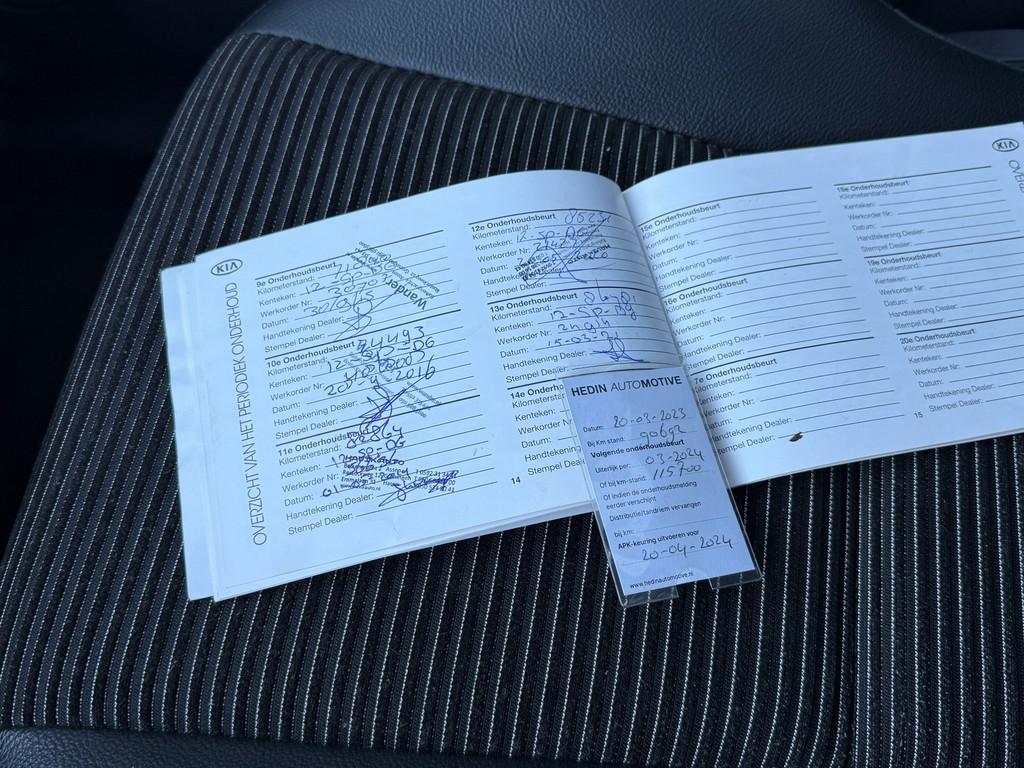 KIA
OVERZICHT VAN HET PERIODIEK ONDERHOUD
9e Onderhoudsbeurt
Kilometerstand:
Kenteken:
Werkorder Nr:
Datum:
Handtekening Dealer:
Stempel Dealer:
10e Onderhoudsbeurt
Kilometerstand: 74493
Kenteken: 12-SP-DG
Werkorder Nr:
Datum: 2016
Handtekening Dealer:
Stempel Dealer:
11e Onderhoudsbeurt
Kilometerstand:
Kenteken:
Werkorder Nr:
Datum:
Handtekening Dealer:
Stempel Dealer:
12e Onderhoudsbeurt
Kilometerstand:
Kenteken: 12-SP-DG
Werkorder Nr:
Datum:
Handtekening Dealer:
Stempel Dealer:
13e Onderhoudsbeurt
Kilometerstand:
Kenteken: 12-SP-DG
Werkorder Nr:
Datum: 15-03-21
Handtekening Dealer:
Stempel Dealer:
14e
Kilometerstand:
Kenteken:
Werkorder Nr:
Datum:
Handtekening
Stempel Dealer:
14
HEDIN AUTOMOTIVE
Datum: 20-03-2023
Bij Km stand: 90692
Volgende onderhoudsbeurt
Uiterlijk per: 03-2024
Of bij km-stand: 115700
Of indien de onderhoudsmelding
eerder verschijnt
Distributie/tandriem vervangen
bij km:
APK-keuring uitvoeren voor
20-04-2024
www.hedinautomotive.nl
15e Onderhoudsbeurt
Kilometerstand:
Kenteken:
Werkorder Nr:
Datum:
Handtekening Dealer:
Stempel Dealer:
16e Onderhoudsbeurt
Kilometerstand:
Kenteken:
Werkorder Nr:
Datum:
Handtekening Dealer:
Stempel Dealer:
17e Onderhoudsbeurt
Kilometerstand:
Kenteken:
Werkorder Nr:
Datum:
Handtekening Dealer:
Stempel Dealer:
18e Onderhoudsbeurt
Kilometerstand:
Kenteken:
Werkorder Nr:
Datum:
Handtekening Dealer:
Stempel Dealer:
19e Onderhoudsbeurt
Kilometerstand:
Kenteken:
Werkorder Nr:
Datum:
Handtekening Dealer:
Stempel Dealer:
20e Onderhoudsbeurt
Kilometerstand:
Kenteken:
Werkorder Nr:
Datum:
Handtekening Dealer:
Stempel Dealer:
15
KIA